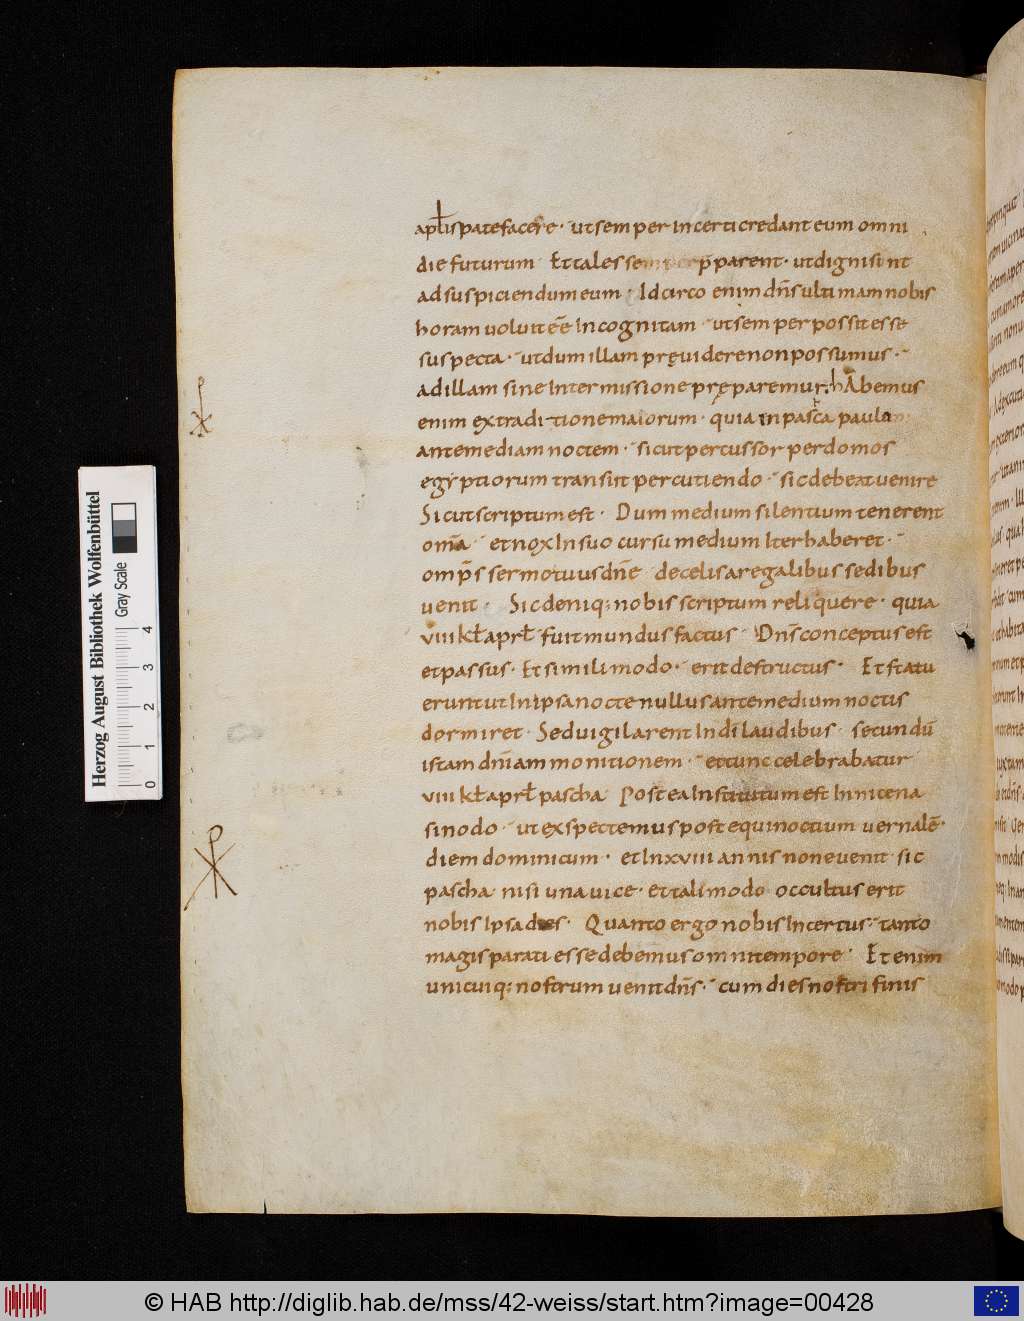 apłis patefacere · ut semper incerti credant eum omni
die futurum Et tales se p̄parent · ut digni sint
ad suspiciendum eum · Idcirco enim dn̄s ultimam nobis
horam uoluit eē Incognitam · ut semper possit esse
suspecta · ut dum illam pręuidere non possumus ·
ad illam sine Intermissione pręparemur · hAbemus
enim ex traditione maiorum · quia in pasca paulo
ante mediam noctem · sicut percussor per domos
egyptiorum transiit percutiendo · sic debeat uenire
Sicut scriptum est · Dum medium silentium tenerent
omīa et nox In suo cursu medium Iter haberet ·
omp̄s sermo tuus dn̄e de celis a regalibus sedibus
uenit · Sic deniq: nobis scriptum reliquere · quia
viii kł aprł fuit mundus factus Dn̄s conceptus est
et passus · Et simili modo · erit destructus · Et statu
erunt ut In ipsa nocte nullus ante medium noctis
dormiret · Sed uigilarent In dī laudibus secundū
istam dn̄i ammonitionem · et tunc celebrabatur
viii kł aprł pascha Postea Institutum est In nicena
sinodo · ut exspectemus post equinoctium uernalē ·
diem dominicum · et In xviii annis non euenit sic
pascha nisi una uice · et tali modo occultus erit
nobis Ipsa dies · Quanto ergo nobis Incertus · tanto
magis parati esse debemus omni tempore · Et enim
unicuiq: nostrum uenit dn̄s · cum dies nostri finis
Herzog August Bibliothek Wolfenbüttel
Gray Scale
0 1 2 3 4
© HAB http://diglib.hab.de/mss/42-weiss/start.htm?image=00428